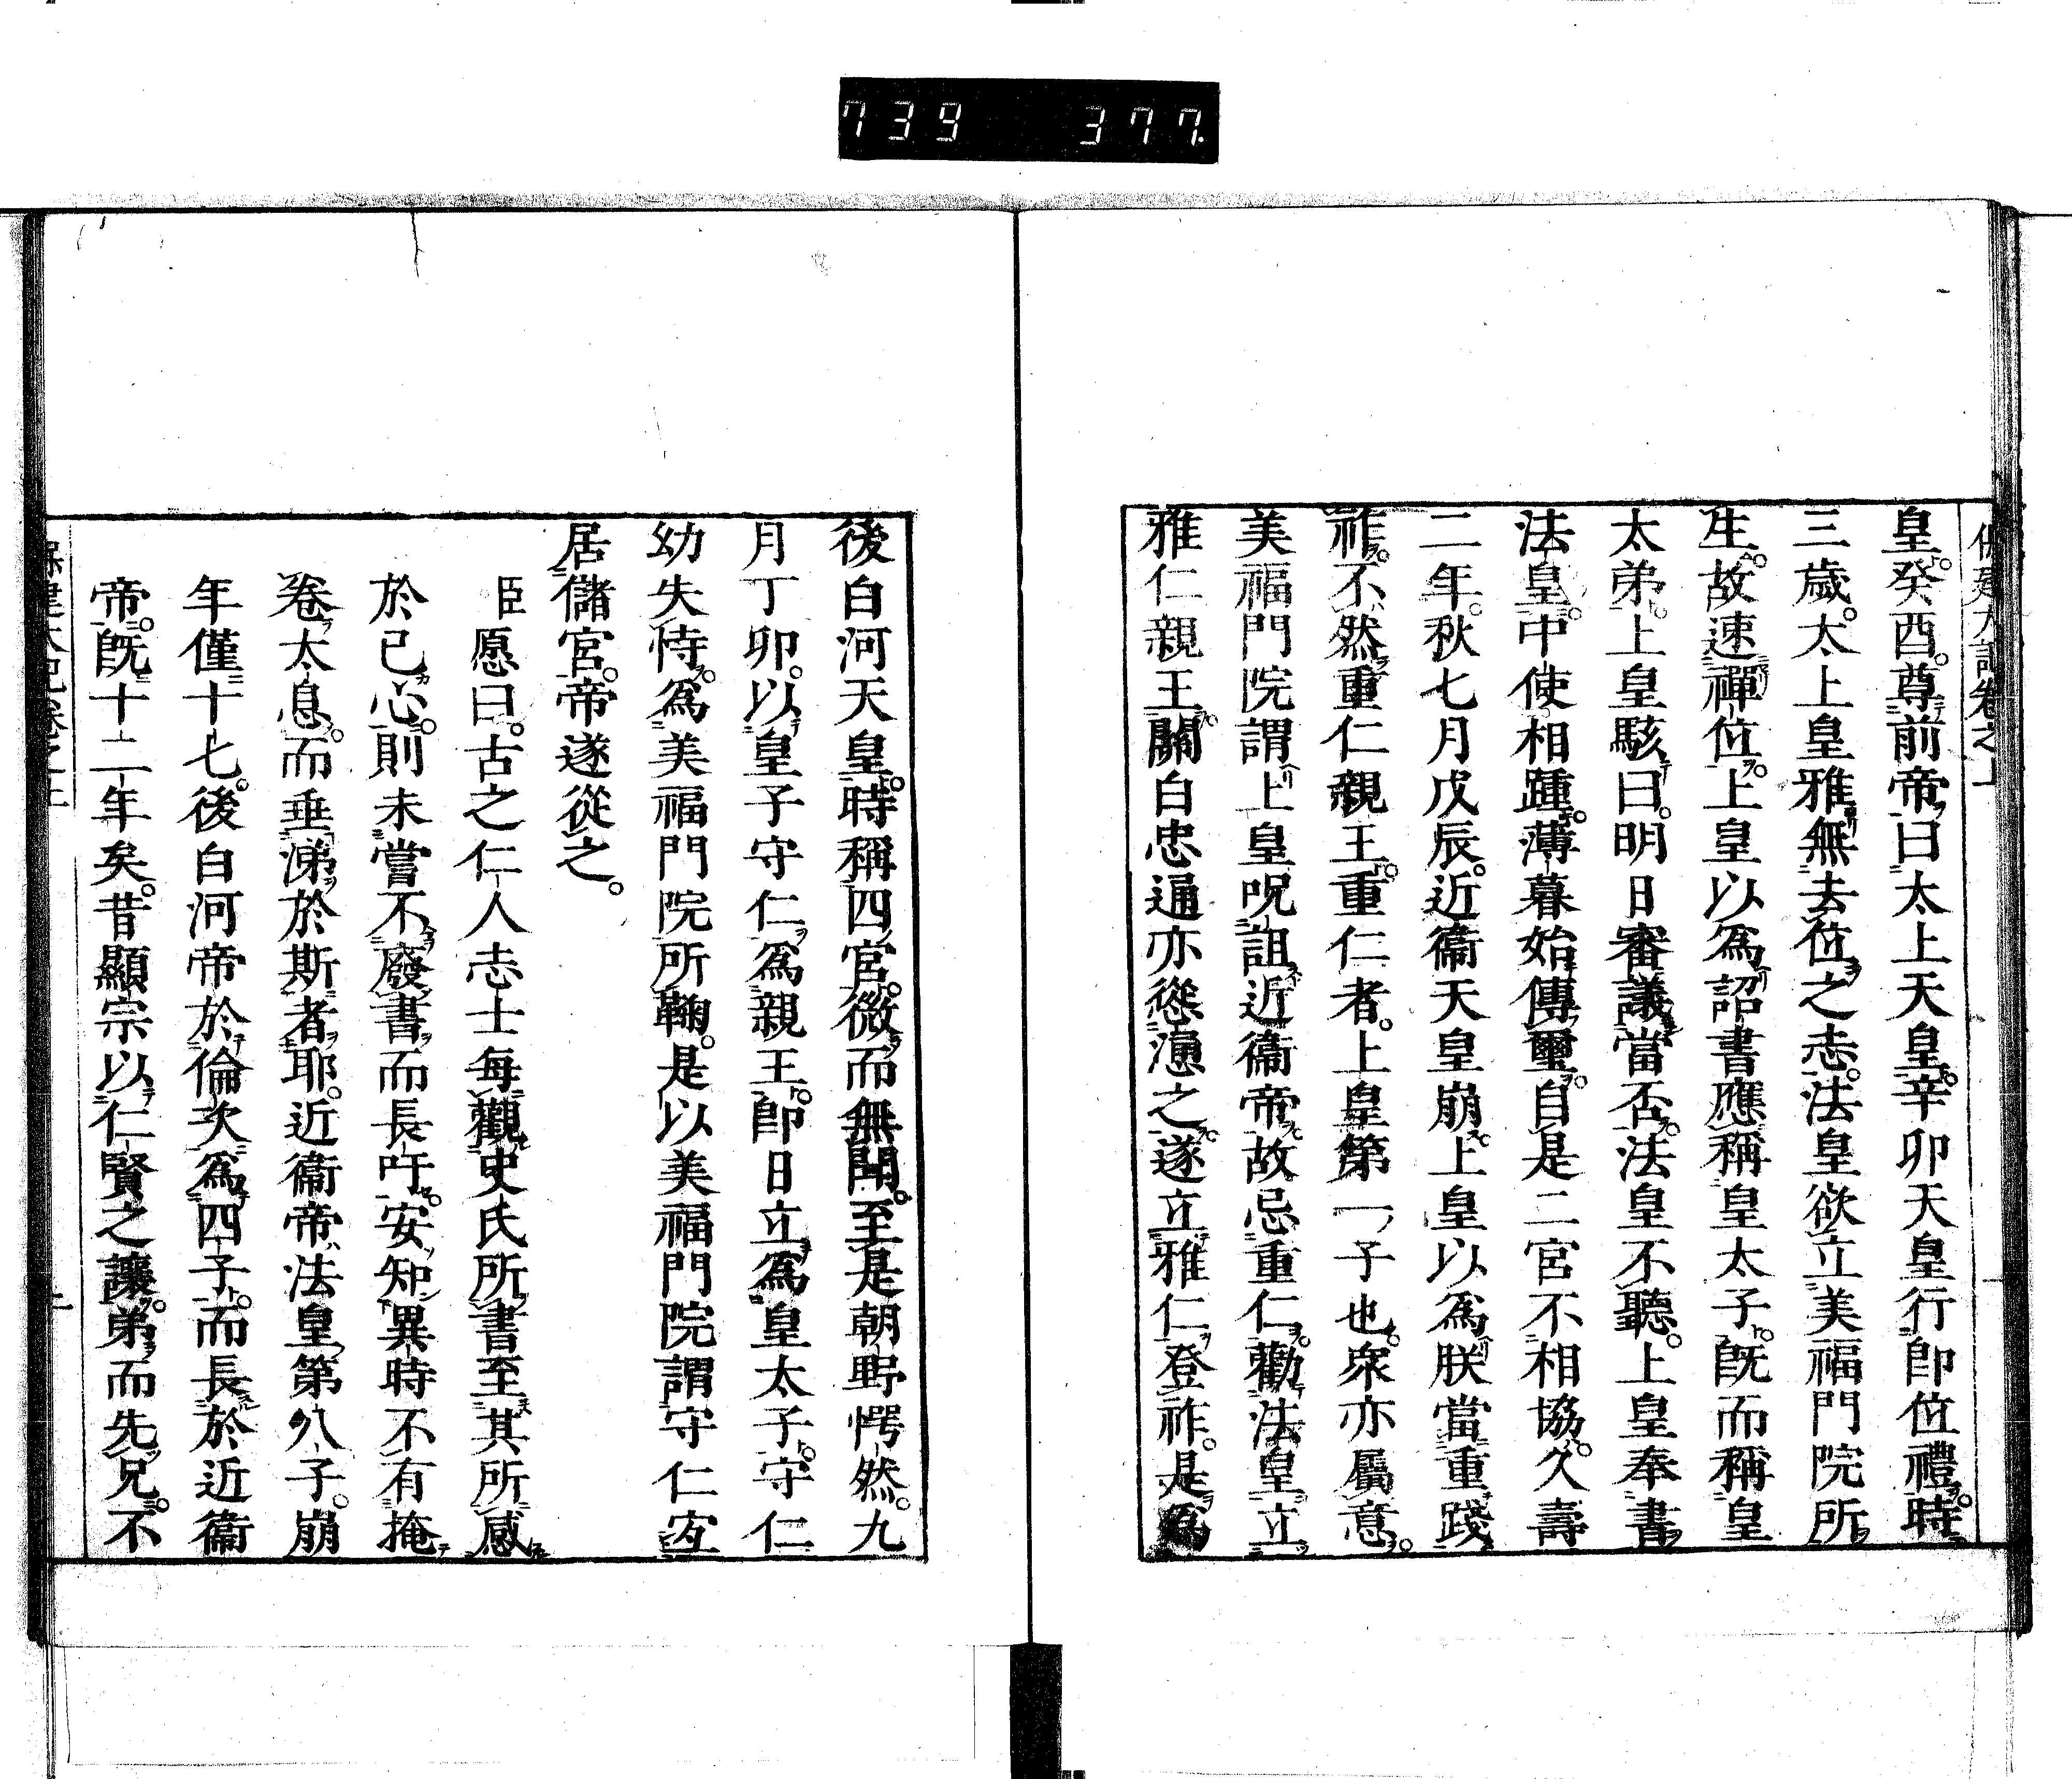 739 377
皇。癸酉。尊前帝曰太上天皇。辛卯天皇行即位禮。時
三歲。太上皇雅無去位之志。法皇欲立美福門院所
生。故速禪位。上皇以為詔書應稱皇太子。既而稱皇
太弟。上皇駭曰。明日審議當否。法皇不聽。上皇奉書
法皇。中使相踵。薄暮始傳璽。自是二宮不相協。久壽
二年。秋七月戊辰。近衞天皇崩。上皇以為朕當重踐
祚。不然重仁親王。重仁者。上皇第一子也。衆亦屬意。
美福門院謂上皇呪詛近衞帝。故忌重仁。勸法皇立
雅仁親王。關白忠通亦慫慂之。遂立雅仁登祚。是為
後白河天皇。時稱四宮。微而無聞。至是朝野愕然。九
月丁卯。以皇子守仁為親王。即日立為皇太子。守仁
幼失恃。為美福門院所鞠。是以美福門院謂守仁宜
居儲宮。帝遂從之。
臣愿曰。古之仁人志士每觀史氏所書至其所感
於己心。則未嘗不廢書而長吁。安知異時不有掩
卷太息。而垂涕於斯者耶。近衞帝法皇第八子。崩
年僅十七。後白河帝於倫次為四子。而長於近衞
帝。既十二年矣。昔顯宗以仁賢之讓。弟而先兄。不